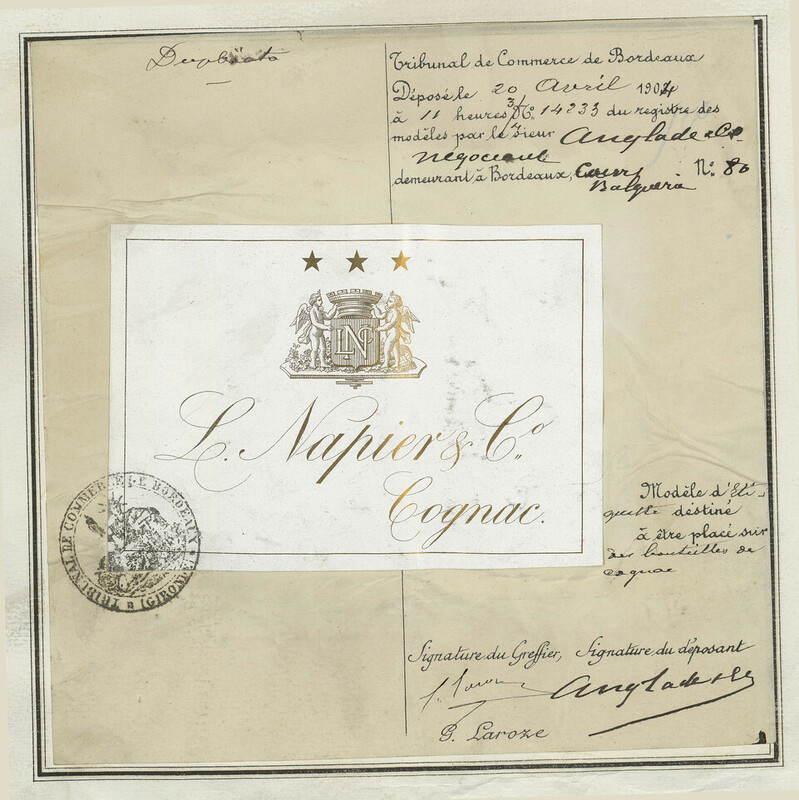 Duplicata
Tribunal de Commerce de Bordeaux
Déposé le 20 Avril 1904
à 11 heures 3/4 No. 14233 du registre des
modèles par le Sieur Anglade & Co
négociant
demeurant à Bordeaux, Cours Balguerie No. 80
LN
L. Napier & Co.
Cognac.
TRIBUNAL DE COMMERCE DE BORDEAUX
(GIRONDE)
Modèle d'Eti-
quette destiné
à être placé sur
des bouteilles de
cognac
Signature du Greffier, Signature du déposant
Anglade & Co
G. Laroze